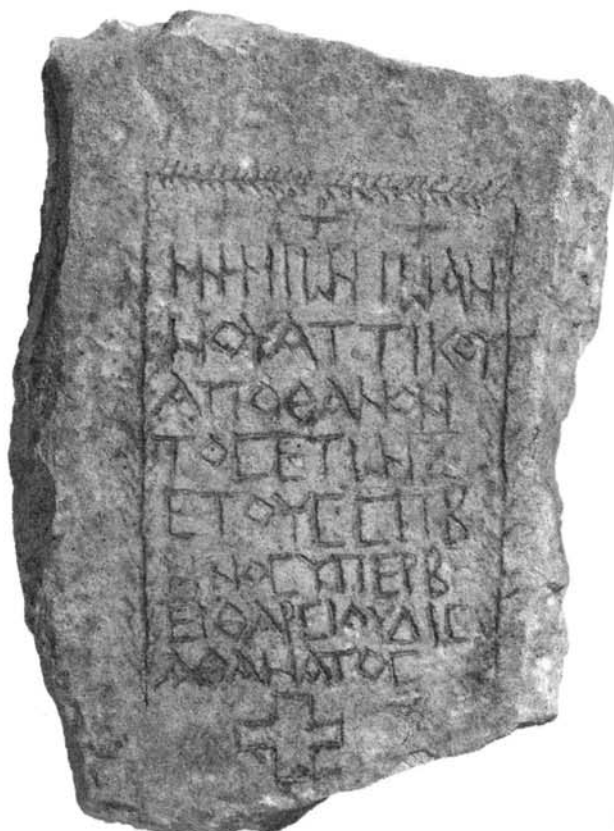 ΙΩΑΝ
ΝΟΥ ΑΤΤΙΚΟΥ
ΑΠΟΘΑΝΟΝ
ΤΟC ΕΤΩΝ
ΕΤΟΥC CΠΒ
ΥΠΕΡΒ
ΕΙ ΘΑΡCΙ ΟΥΔΙC
ΑΘΑΝΑΤΟC